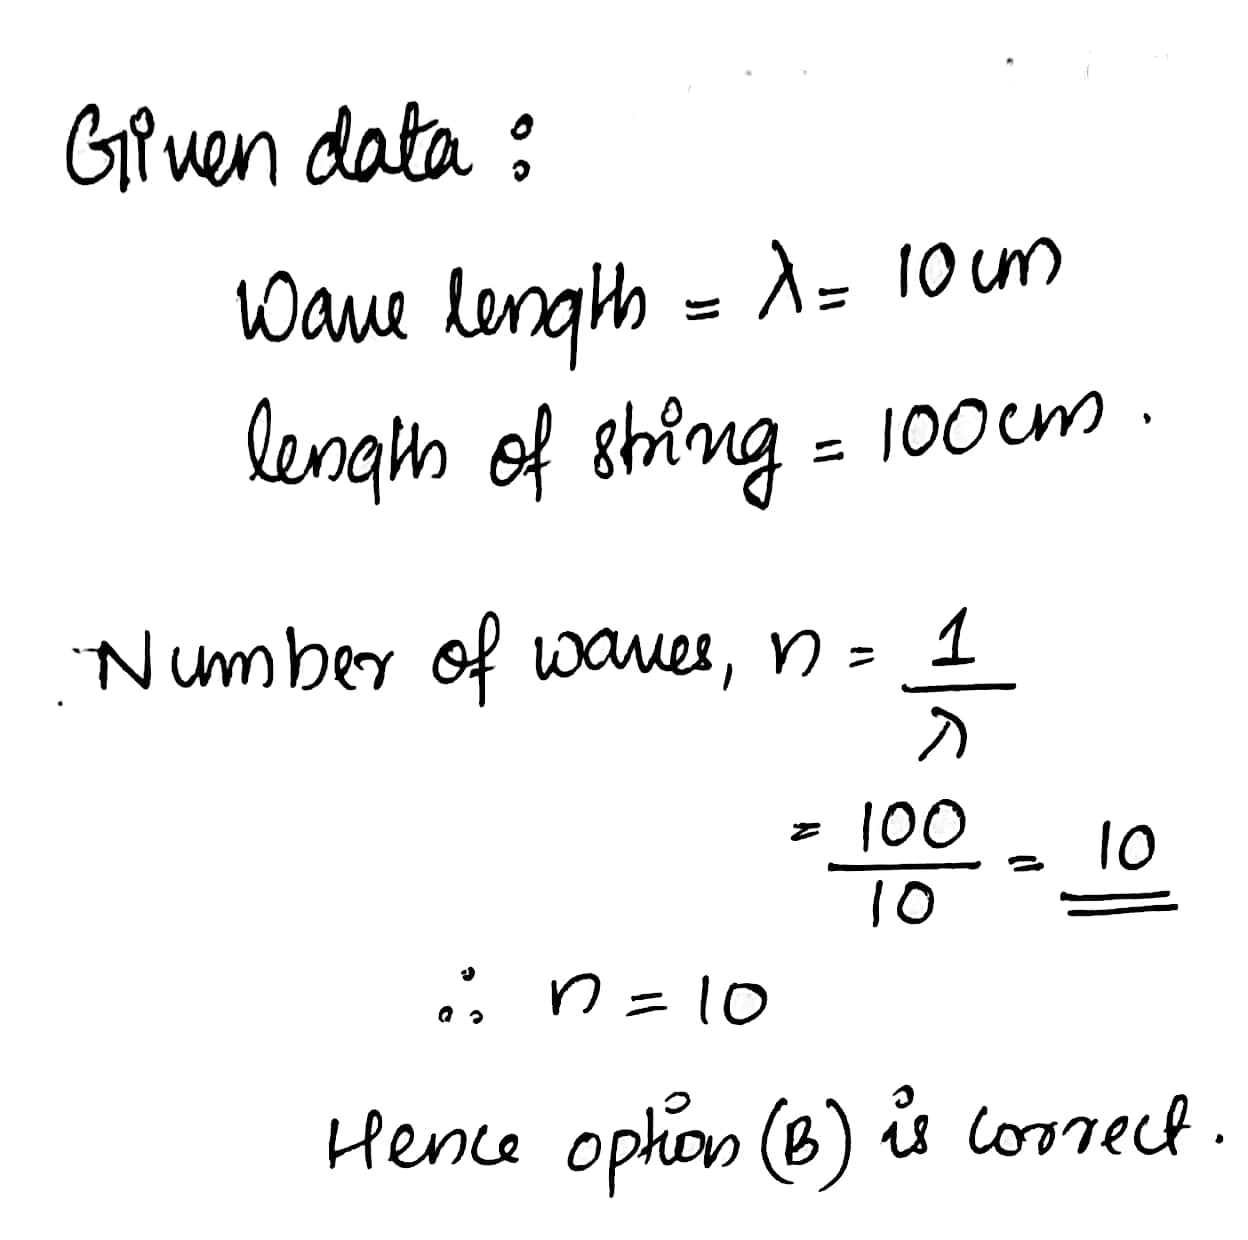 Given data :
Wave length = λ = 10 cm
length of string = 100 cm .
Number of waves, n = 1/λ
= 100/10 = 10
∴ n = 10
Hence option (B) is correct.